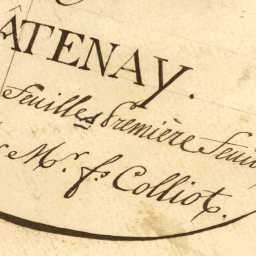 ÂTENAY.
Feuilles Première Feuil
Mr. fs. Colliot.